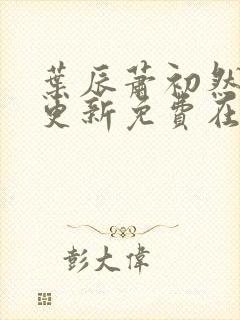 葉辰蕭初然
更新免費在
彭大偉